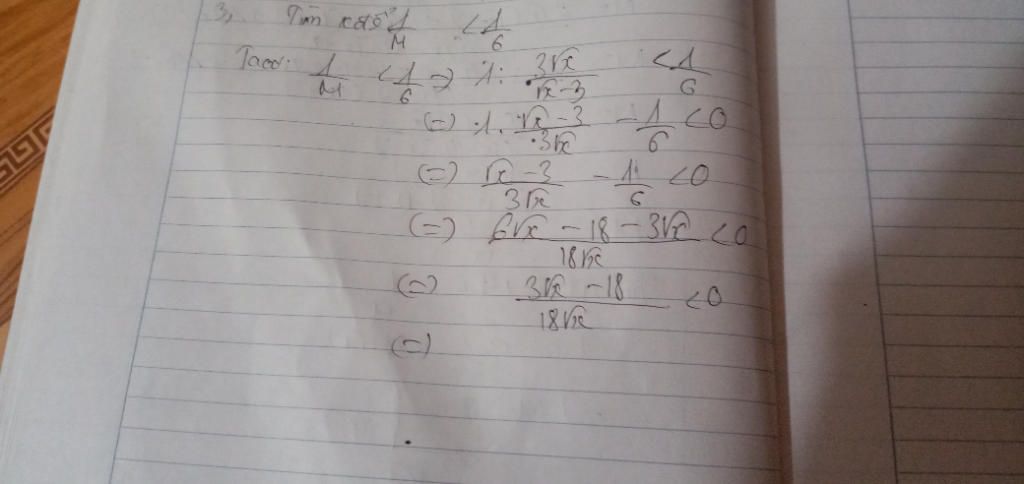 3, Tìm x để 1/M < 1/6
Ta có: 1/M < 1/6 => 1 : 3√x/(√x-3) < 1/6
(=) 1. (√x-3)/(3√x) - 1/6 < 0
(=) (√x-3)/(3√x) - 1/6 < 0
(=) (6√x - 18 - 3√x)/(18√x) < 0
(=) (3√x - 18)/(18√x) < 0
(=)